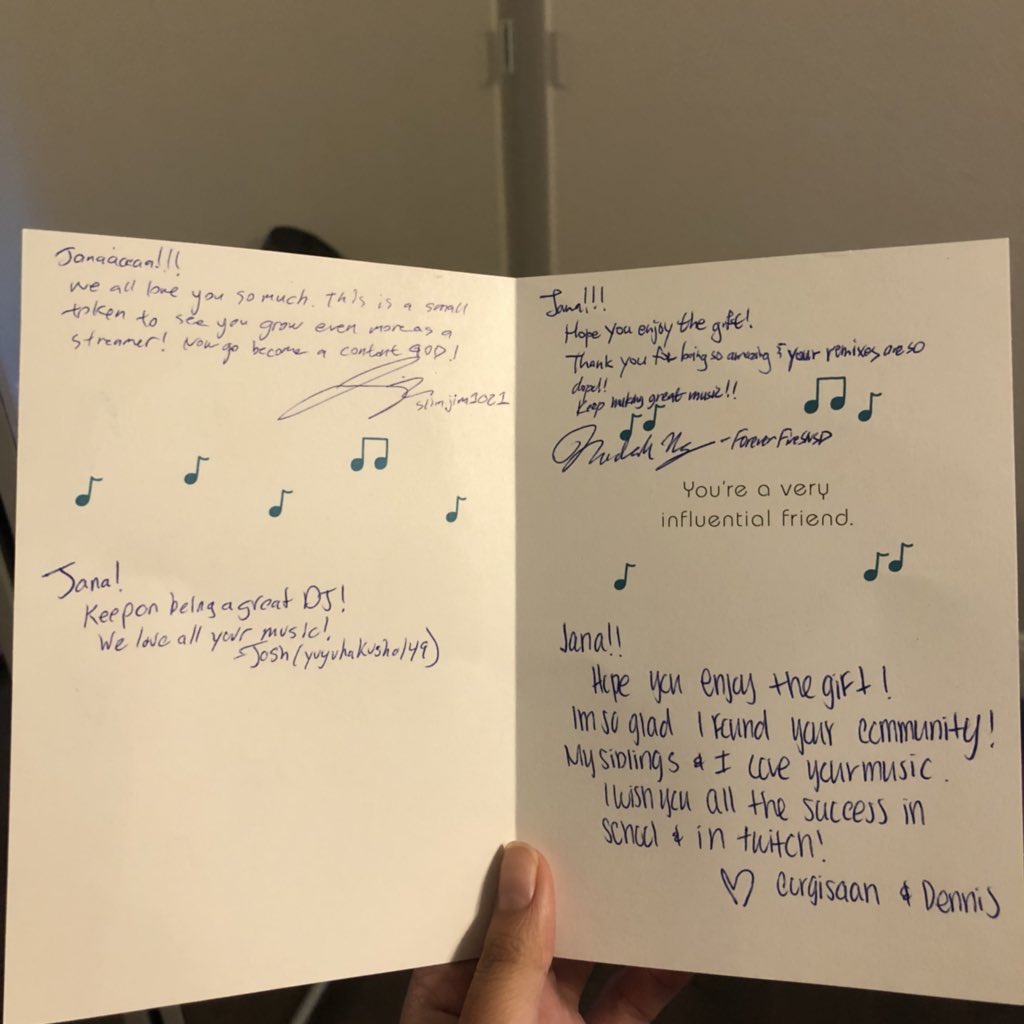 Janaaaaan!!!
We all love you so much. This is a small
token to see you grow even more as a
streamer! Now go become a content GOD!
slimjim1021
Jana!
Keep on being a great DJ!
We love all your music!
-Josh (yuyuhakusho149)
Jana!!!
Hope you enjoy the gift!
Thank you for being so amazing & your remixes are so
dope!!
Keep making great music!!
-ForeverFiresNSD
You're a very
influential friend.
Jana!!
Hope you enjoy the gift!
Im so glad I found your community!
My siblings & I love your music.
I wish you all the success in
school & in twitch!
♡ Corgisaan & Dennis